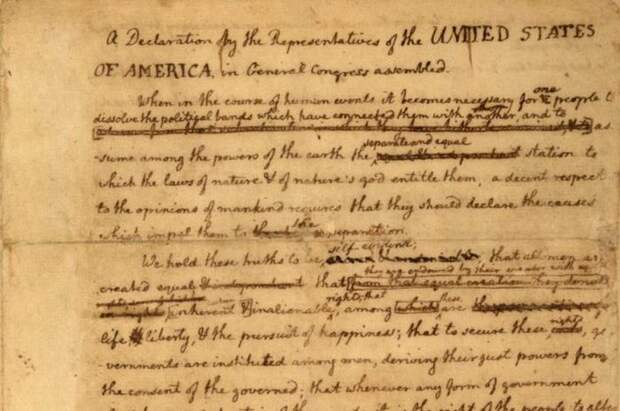 A Declaration by the Representatives of the UNITED STATES
OF AMERICA, in General Congress assembled.
When in the course of human events it becomes necessary for one people to
dissolve the political bands which have connected them with another, and to
as
separate and equal
sume among the powers of the earth the station to
which the laws of nature & of nature's god entitle them, a decent respect
to the opinions of mankind requires that they should declare the causes
which impel them to the separation.
self-evident;
We hold these truths to be, that all men are
they are endowed by their creator with
created equal & independant that from that equal creation they derive
rights, that these
inherent & inalienable, among which are
life & liberty, & the pursuit of happiness; that to secure these rights, go
vernments are instituted among men, deriving their just powers from
the consent of the governed; that whenever any form of government
it is the right of the people to alter